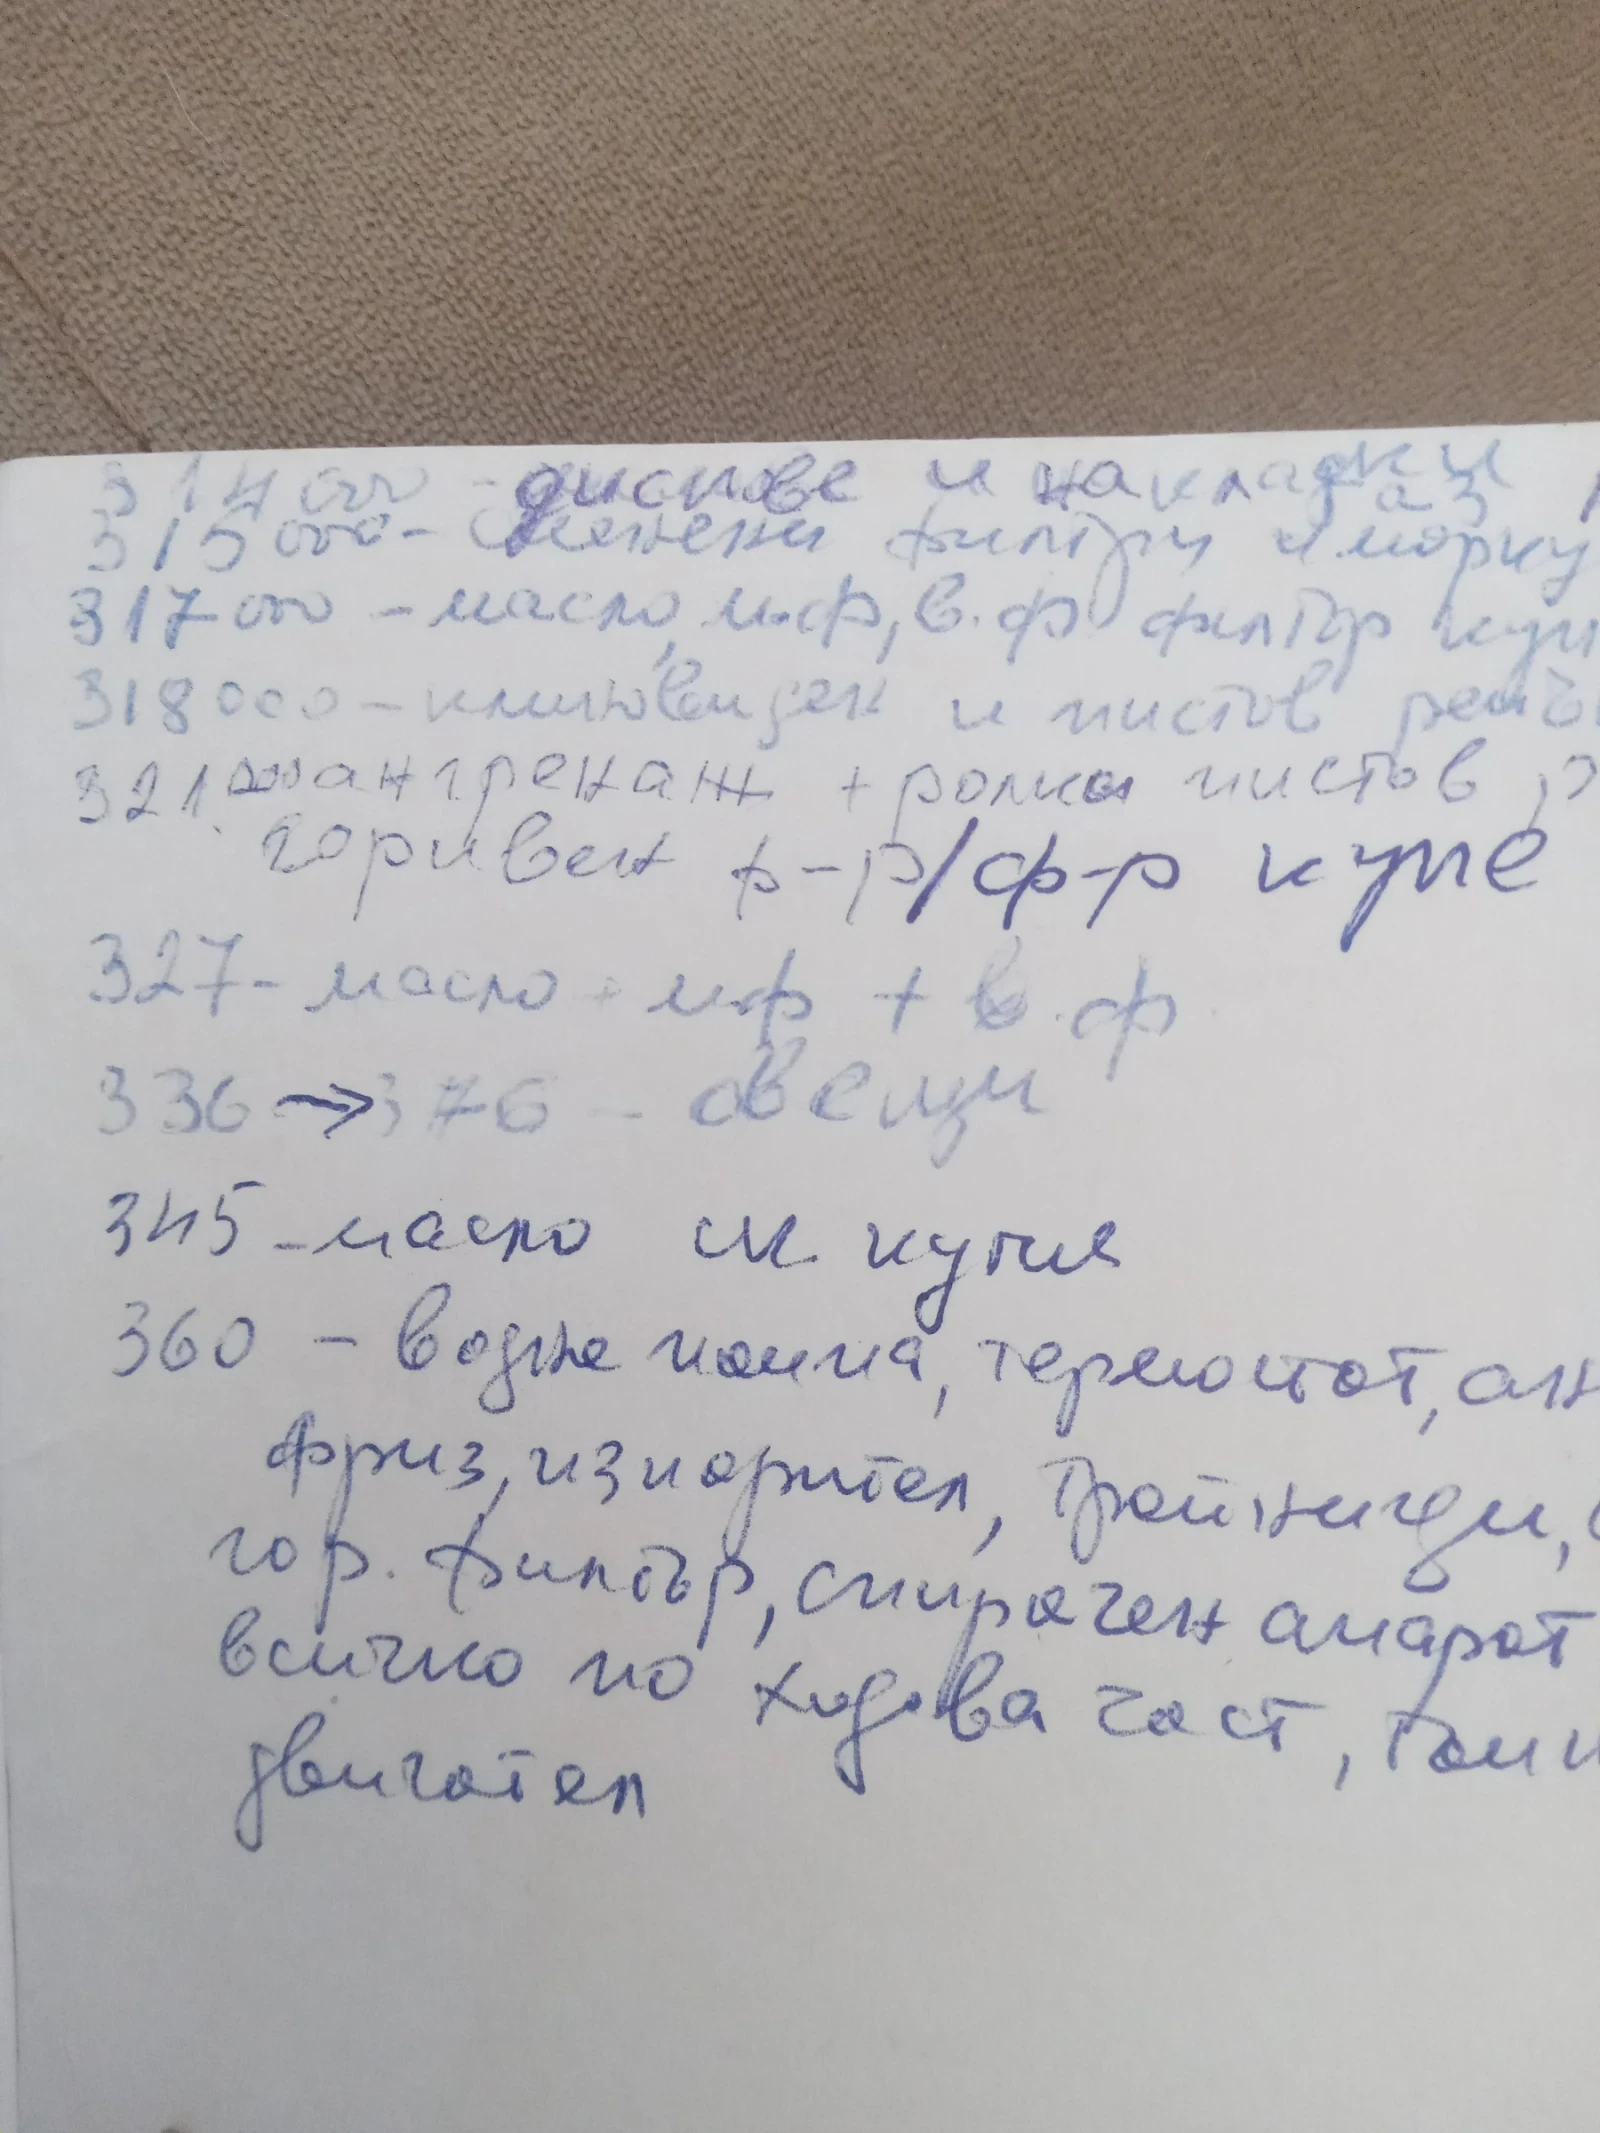 314 000 - дискове и накладки
315 000 - сменени филтри газ и морку
317 000 - масло, м.ф, в.ф филтър куп
318 000 - клиновиден и пистов
321 000 ангренаж + ролки пистов,
горивен ф-р/ф-р купе
327 - масло + м.ф + в.ф.
336 → 376 - свещи
345 - масло ск. кутия
360 - водна помпа, термостат, ан
фриз, изпарител, тройници,
гор. филтър, спирачен апарат
всичко по ходова част,
двигател